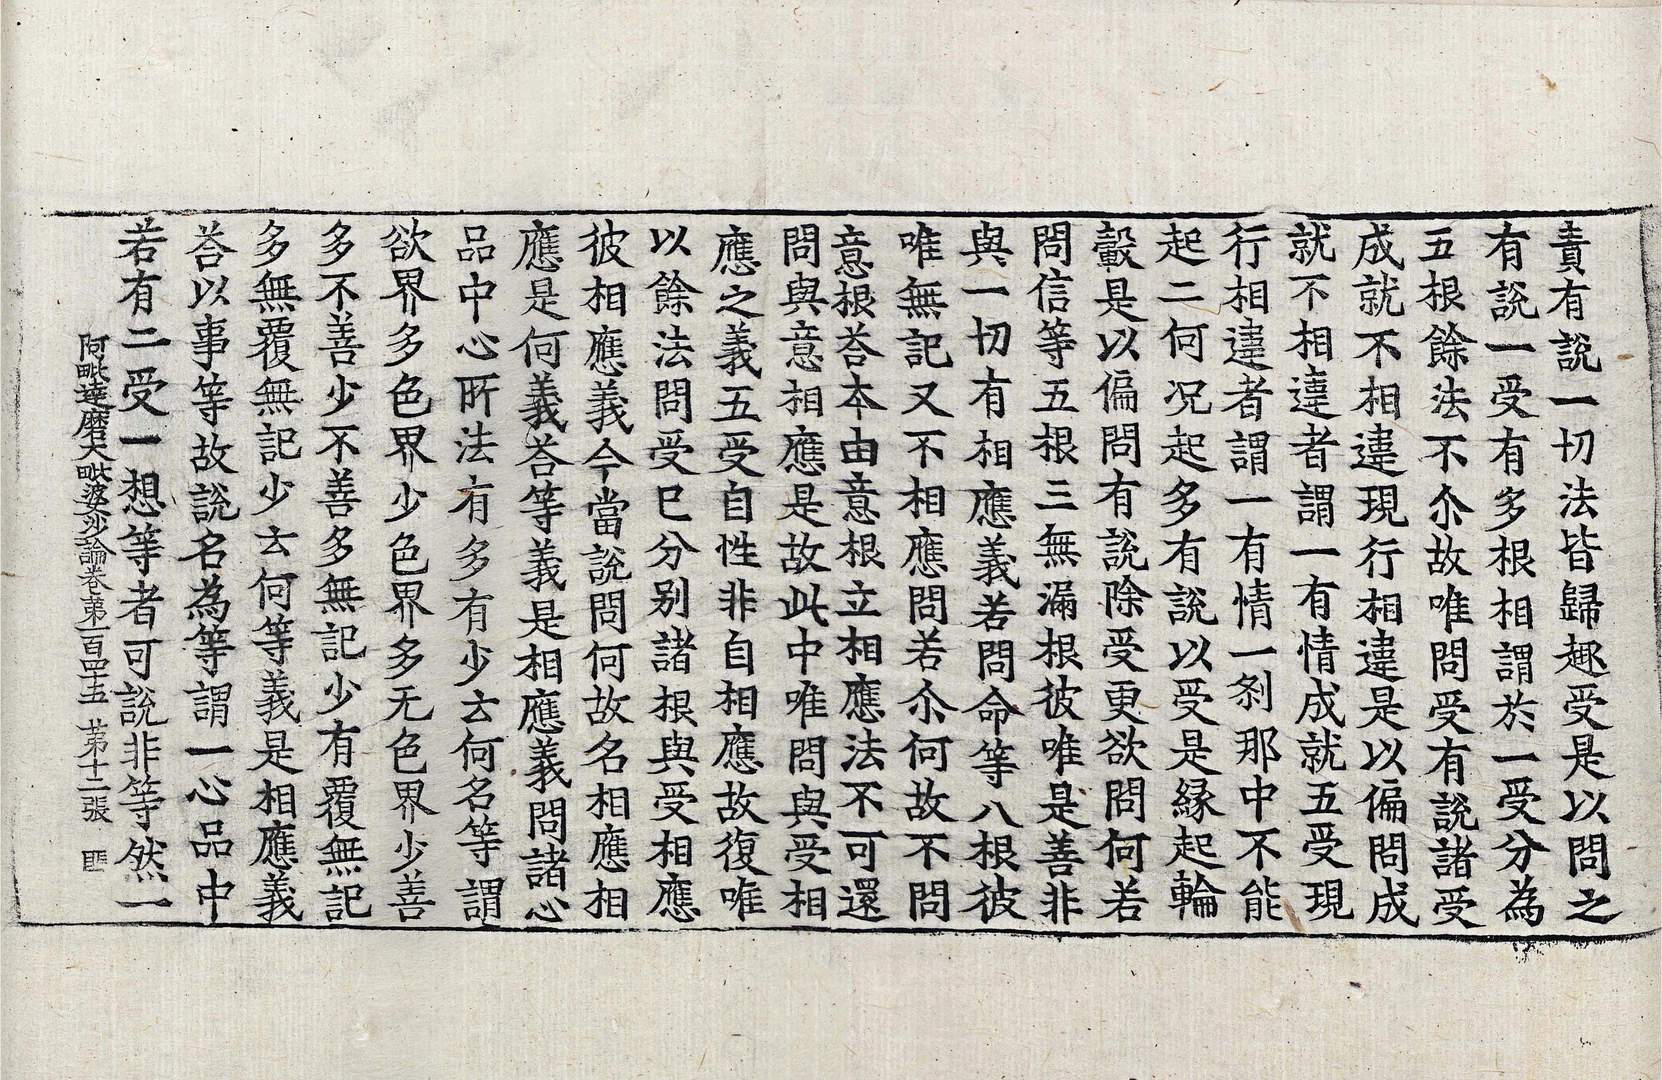 責有說一切法皆歸趣受是以問之
有說一受有多根相謂於一受分為
五根餘法不尒故唯問受有說諸受
成就不相違現行相違是以偏問成
就不相違者謂一有情成就五受現
行相違者謂一有情一剎那中不能
起二何況起多有說以受是緣起輪
轂是以偏問有說除受更欲問何若
問信等五根三無漏根彼唯是善非
與一切有相應義若問命等八根彼
唯無記又不相應問若尒何故不問
意根荅本由意根立相應法不可還
問與意相應是故此中唯問與受相
應之義五受自性非自相應故復唯
以餘法問受已分別諸根與受相應
彼相應義今當說問何故名相應相
應是何義荅等義是相應義問諸心
品中心所法有多有少云何名等謂
欲界多色界少色界多无色界少善
多不善少不善多無記少有覆無記
多無覆無記少云何等義是相應義
荅以事等故說名為等謂一心品中
若有二受一想等者可說非等然一
阿毗達磨大毗婆沙論卷第一百四十五 第十二張 匪